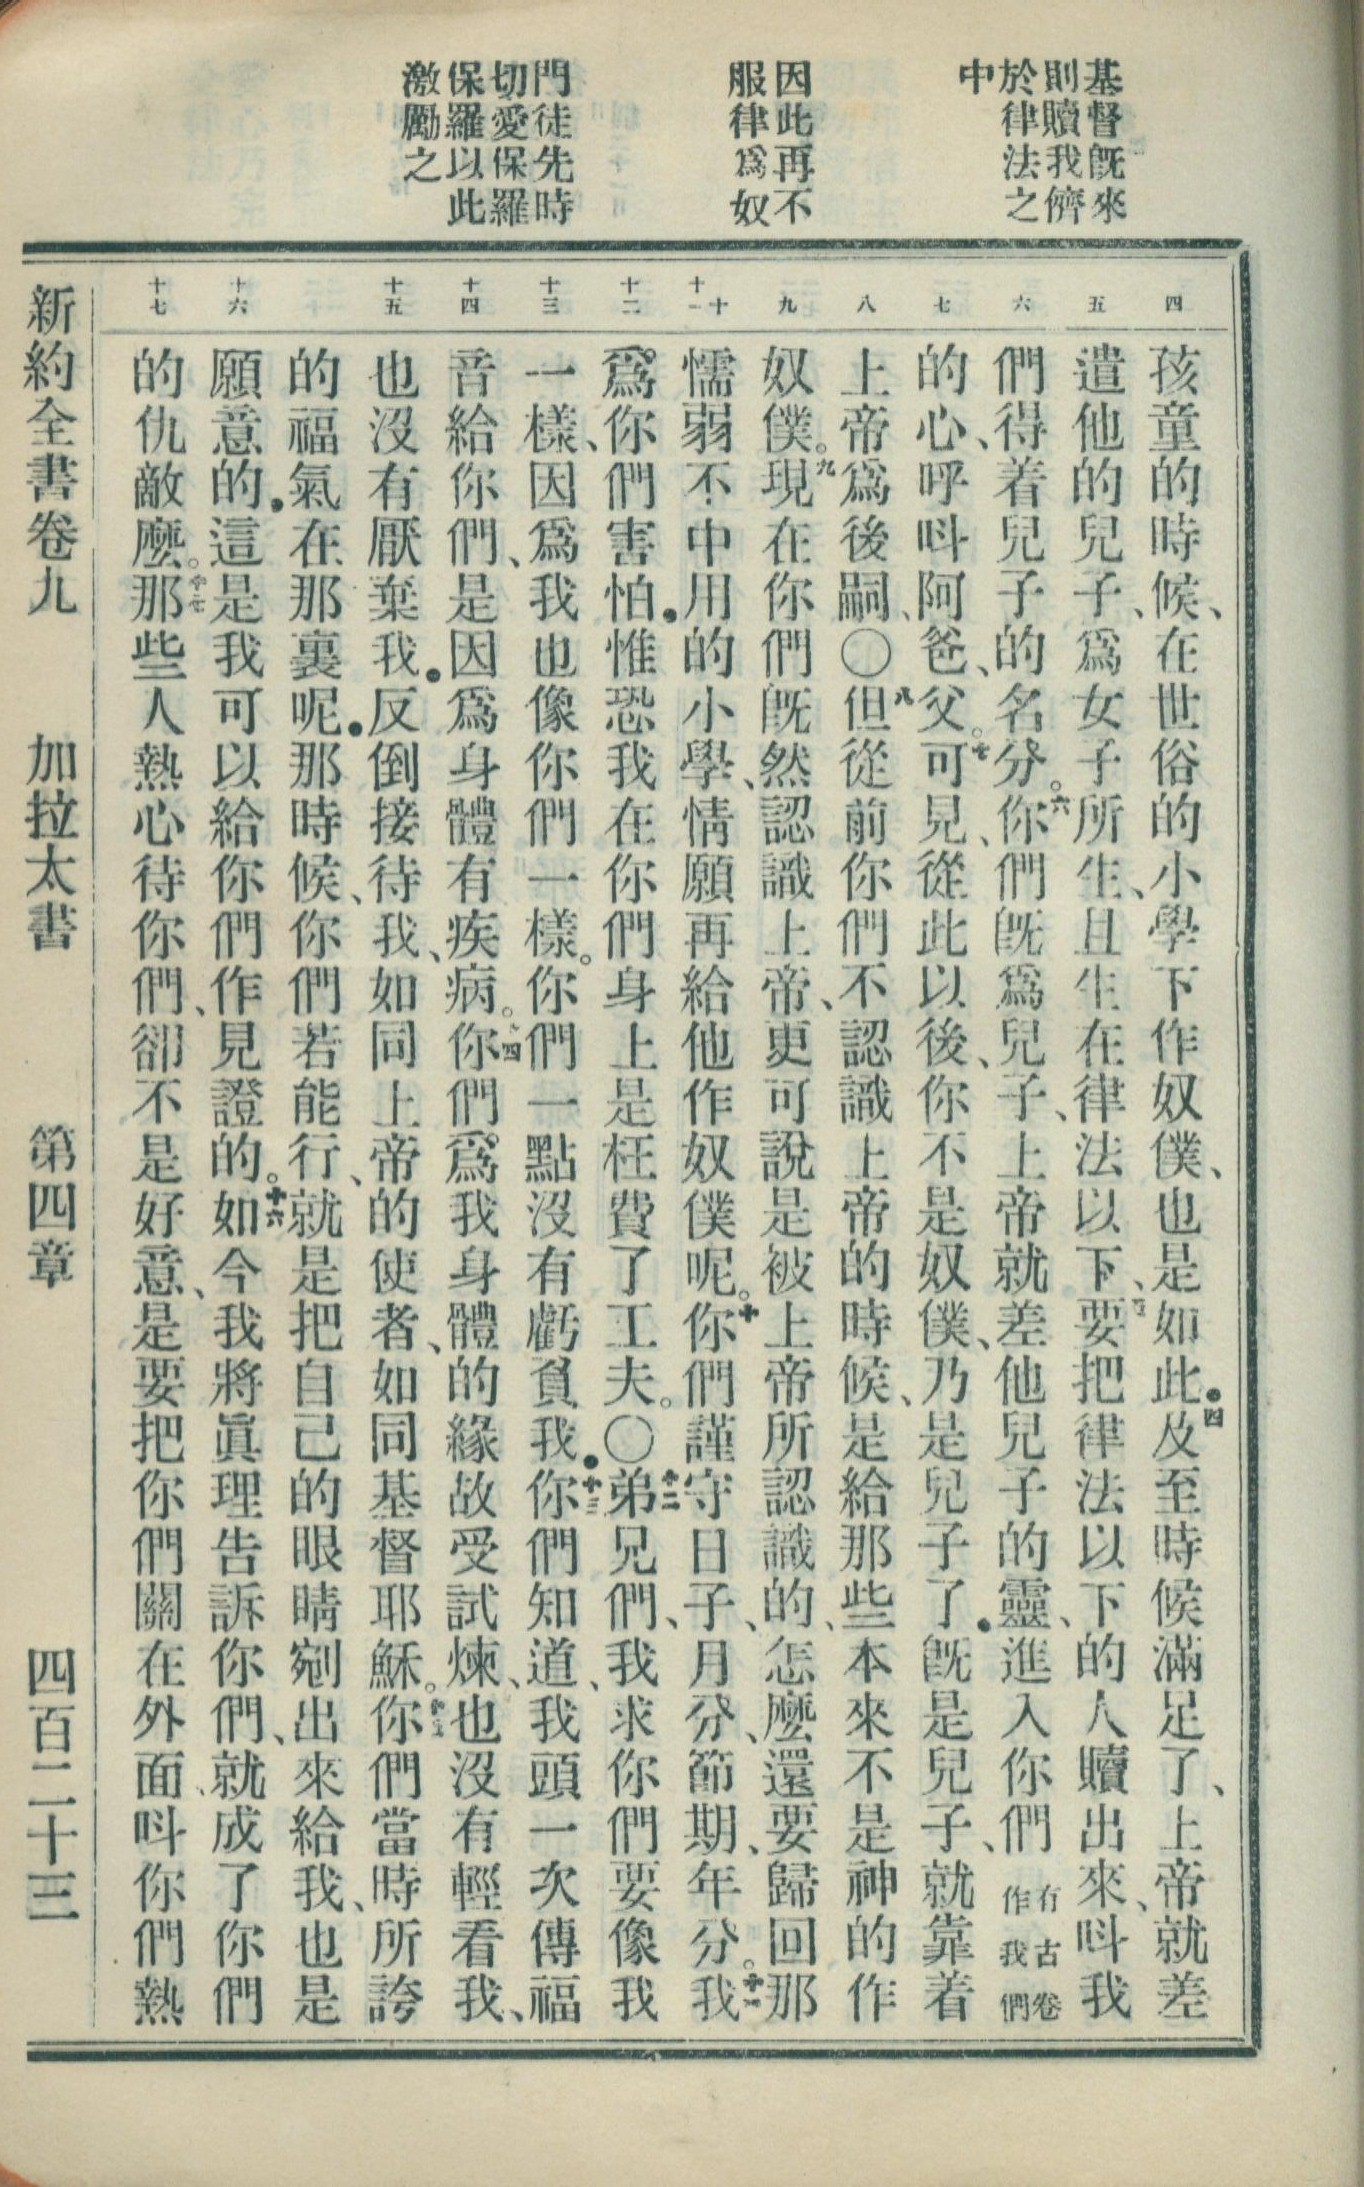 基督旣來
則贖我儕
於律法之
中
因此再不
服律爲奴
門徒先時
切愛保羅
保羅以此
激勵之
四
五
六
七
八
九
十
十一
十二
十三
十四
十五
十六
十七
孩童的時候、在世俗的小學下作奴僕、也是如此．四及至時候滿足了、上帝就差
遣他的兒子、爲女子所生、且生在律法以下、五要把律法以下的人贖出來、呌我
們得着兒子的名分。六你們旣爲兒子、上帝就差他兒子的靈、進入你們有古卷作我們
的心、呼呌阿爸、父。七可見、從此以後、你不是奴僕、乃是兒子了．旣是兒子、就靠着
上帝爲後嗣、〇八但從前你們不認識上帝的時候、是給那些本來不是神的作
奴僕。九現在你們旣然認識上帝、更可說是被上帝所認識的、怎麽還要歸回那
懦弱不中用的小學、情願再給他作奴僕呢。十你們謹守日子、月分、節期、年分。十一我
爲你們害怕．惟恐我在你們身上是枉費了工夫。〇十二弟兄們、我求你們要像我
一樣、因爲我也像你們一樣。你們一點沒有虧負我．十三你們知道、我頭一次傳福
音給你們、是因爲身體有疾病。十四你們爲我身體的緣故受試煉、也沒有輕看我、
也沒有厭棄我．反倒接待我、如同上帝的使者、如同基督耶穌。十五你們當時所誇
的福氣在那裏呢．那時候、你們若能行、就是把自己的眼睛剜出來給我、也是
願意的．這是我可以給你們作見證的。十六如今我將眞理告訴你們、就成了你們
的仇敵麽。十七那些人熱心待你們、卻不是好意、是要把你們關在外面、呌你們熱
新約全書卷九　加拉太書　第四章　四百二十三